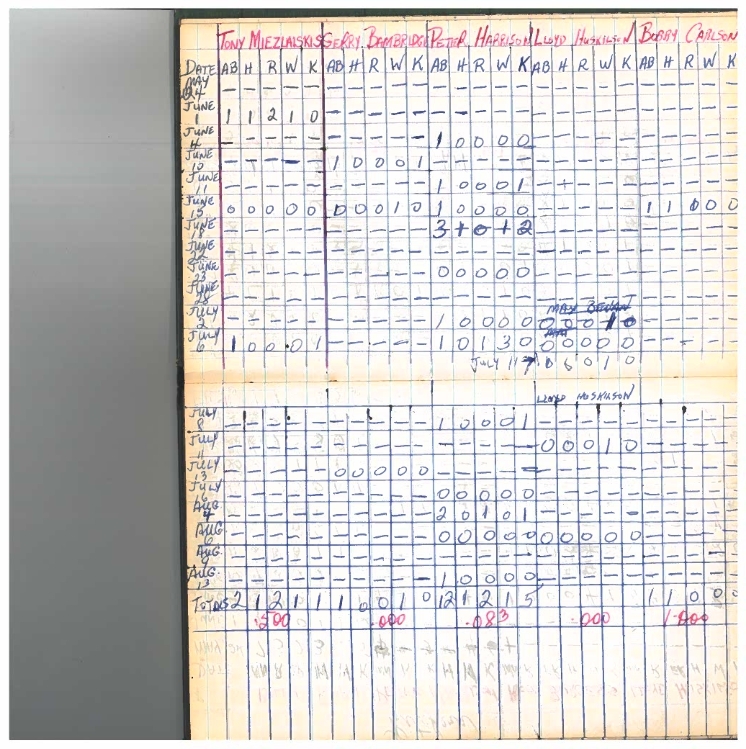 TONY MIEZLAISKIS GERRY BAMBRIDGE PETER HARRISON LLOYD HUSKILSON BOBBY CARLSON
DATE AB H R W K AB H R W K AB H R W K AB H R W K AB H R W K
MAY 24 – – – – – – – – – – – – – – – – – – – – – – – –
JUNE 1 1 1 2 1 0 – – – – – – – – – – – – – – – – – – –
JUNE 4 – – – – – – – – – – 1 0 0 0 0 – – – – – – – – – –
JUNE 10 – – – – – 1 0 0 0 1 – – – – – – – – – – – – – –
JUNE 11 – – – – – – – – – – 1 0 0 0 1 – – – – – – – – – –
JUNE 15 0 0 0 0 0 0 0 0 1 0 1 0 0 0 0 – – – – – 1 1 0 0 0
JUNE 18 – – – – – – – – – – 3 1 0 1 2 – – – – – – – – – –
JUNE 22 – – – – – – – – – – – – – – – – – – – – – – – –
JUNE 23 – – – – – – – – – – 0 0 0 0 0 – – – – – – – – – –
JUNE 28 – – – – – – – – – – – – – – – – – – – – – – – –
MAX BEWAN
JULY 2 – – – – – – – – – – 1 0 0 0 0 0 0 0 1 0 – – – – –
JULY 6 1 0 0 0 1 – – – – – 1 0 1 3 0 0 0 0 0 0 – – – – –
JULY 11 0 0 0 1 0
LLOYD HUSKILSON
JULY 8 – – – – – – – – – – 1 0 0 0 1 – – – – – – – – – –
JULY 11 – – – – – – – – – – – – – – – 0 0 0 1 0 – – – – –
JULY 13 – – – – – 0 0 0 0 0 – – – – – – – – – – – – – – –
JULY 16 – – – – – – – – – – 0 0 0 0 0 – – – – – – – – – –
AUG 4 – – – – – – – – – – 2 0 1 0 1 – – – – – – – – – –
AUG 6 – – – – – – – – – – 0 0 0 0 0 0 0 0 0 0 – – – – –
AUG 9 – – – – – – – – – – – – – – – – – – – – – – – –
AUG. 13 – – – – – – – – – – 1 0 0 0 0 – – – – – – – – – –
TOTALS 2 1 2 1 1 1 0 0 1 0 12 1 2 1 5 1 1 0 0 0
.500 .000 .083 .000 1.000